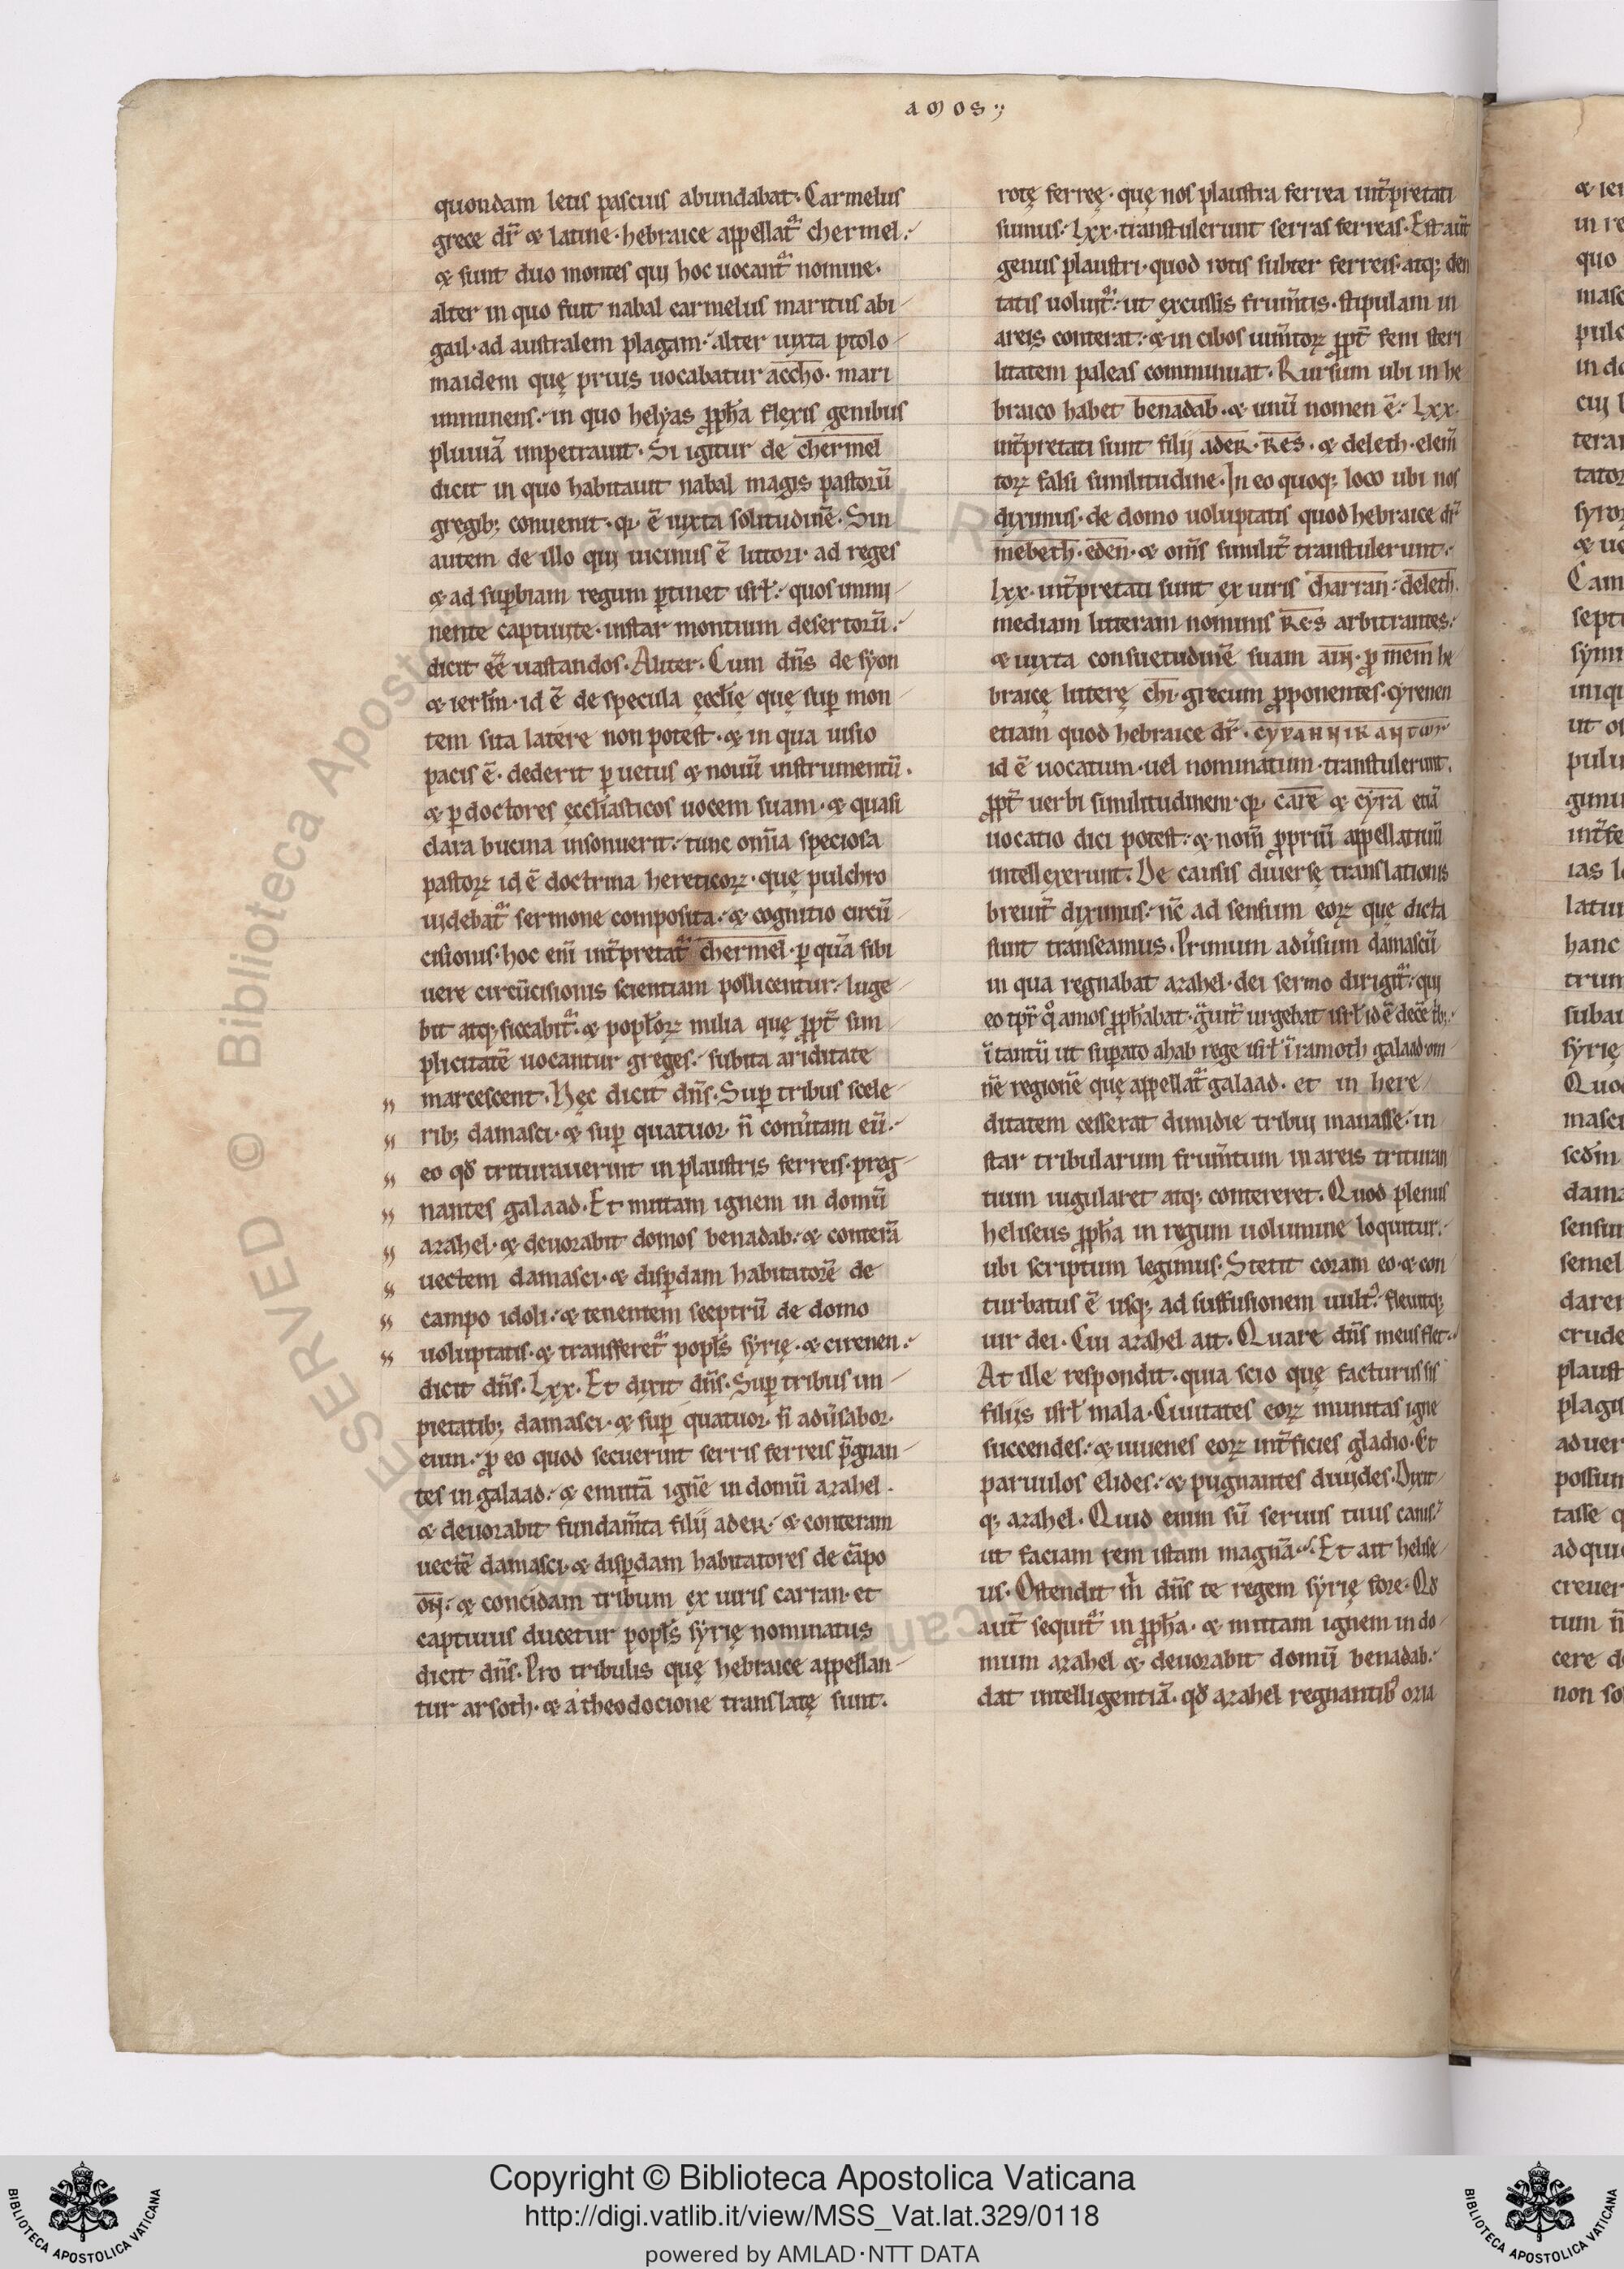 amos
quondam letis pascuis abundabat. Carmelus
grece dr̄ & latine. hebraice appellat᷑ chermel.
& sunt duo montes qui hoc uocant᷑ nomine.
alter in quo fuit nabal carmelus maritus abi-
gail. ad australem plagam. alter iuxta ptolo-
maidem quę prius uocabatur accho. mari
imminens. in quo helyas ꝓph̄a flexis genibus
pluuiā impetrauit. Si igitur de chermel
dicit in quo habitauit nabal magis pastorū
gregib; conuenit. ē iuxta solitudinē. Sin
autem de illo qui uicinus ē littori. ad reges
& ad suꝑbiam regum ꝑtinet isrł. quos immi-
nente captiuitate. instar montium desertorū.
dicit eē uastandos. Aliter. Cum dn̄s de syon
& ierłm. id ē de specula ęccłię quę suꝑ mon-
tem sita latere non potest. & in qua uisio
pacis ē. dederit ꝑ uetus & nouū instrumentū.
& ꝑ doctores ęccłiasticos uocem suam. & quasi
clara bucina insonuerit. tunc om̄ia speciosa
pastorꝝ id ē doctrina hereticorꝝ. quę pulchro
uidebat᷑ sermone composita. & cognitio circū-
cisionis. hoc eni̅ int̄pretat᷑ chermel. ꝑ quā sibi
uere circūcisionis scientiam pollicentur. luge-
bit atq; siccabit᷑. & popłorꝝ milia quę ꝓpt̄ sim-
plicitatē uocantur greges. subita ariditate
marcescent. Hęc dicit dn̄s. Suꝑ tribus scele-
rib; damasci. & suꝑ quatuor. n̄ conu̓tam eū.
eo qd̄ triturauerint in plaustris ferreis. preg-
nantes galaad. Et mittam ignem in domū
azahel. & deuorabit domos benadab. & conterā
uectem damasci. & disꝑdam habitatorē de
campo idoli. & tenentem sceptrū de domo
uoluptatis. & transferet᷑ popłs syrię. & cirenen.
dicit dn̄s. Lxx. Et dixit dn̄s. Suꝑ tribus im-
pietatib; damasci. & suꝑ quatuor. n̄ adūsabor.
eum. ꝓ eo quod secuerint serris ferreis p̄gnan-
tes in galaad. & emittā ignē in domū azahel.
& deuorabit fundam̄ta filij ader. & conteram
uectē damasci. & disꝑdam habitatores de cāpo
on. & concidam tribum ex uiris carran. et
captiuus ducetur popłs syrię nominatus
dicit dn̄s. Pro tribulis quę hebraice appellan-
tur arsoth. & a theodocione translatę sunt.
rotę ferreę. quę nos plaustra ferrea int̄pretati
sumus. Lxx. transtulerunt serras ferreas. Est aut̄
genus plaustri. quod rotis subter ferreis. atq; den
tatis uoluit᷑. ut excussis frum̄tis. stipulam in
areis conterat. & in cibos ium̄torꝝ ꝓpt̄ feni steri
litatem paleas comminuat. Rursum ubi in he
braico habet benadab. & unū nomen ē. Lxx.
int̄pretati sunt filij ader. Res. & deleth. elem̄
torꝝ falsi similitudine. In eo quoq; loco ubi nos
diximus. de domo uoluptatis quod hebraice dr̄
mebeth. eden. & om̄s similit̄ transtulerunt.
Lxx. int̄pretati sunt ex uiris charran. deleth.
mediam litteram nominis Res arbitrantes.
& iuxta consuetudinē suam ain. ꝓ mem he
braicę litterę chi. grecum ꝓponentes. cyrenen
etiam quod hebraice dr̄.
id ē uocatum. uel nominatum. transtulerunt.
ꝓpt̄ uerbi similitudinem. care & cyra etiā
uocatio dici potest. & nom̄ ꝓpriū appellatiuū
intellexerunt. De causis diuersę translationis
breuit̄ diximus. nc̄ ad sensum eorꝝ quę dicta
sunt transeamus. Primum adūsum damascū
in qua regnabat azahel. dei sermo dirigit᷑. qui
eo tp̄r amos ꝓph̄abat. urgebat isrł id ē decē trib;.
ī tantū ut suꝑato ahab rege isrł ī ramoth galaad om
nē regionē quę appellat᷑ galaad. et in here
ditatem cesserat dimidię tribui manasse. in
star tribularum frum̄tum in areis trituran
tium iugularet atq; contereret. Quod plenius
heliseus ꝓph̄a in regum uolumine loquitur.
ubi scriptum legimus. Stetit coram eo. & con
turbatus ē usq; ad suffusionem uult᷒. fleuitq;
uir dei. Cui azahel ait. Quare dn̄s meus flet.
At ille respondit. quia scio quę facturus sis
filijs isrł mala. Ciuitates eorꝝ munitas igne
succendes. & iuuenes eorꝝ int̄ficies gladio. Et
paruulos elides. & pugnantes diuides. Dixit
q; azahel. Quid enim sū seruus tuus canis.
ut faciam rem istam magnā. Et ait helise
us. Ostendit m̄ dn̄s te regem syrię fore. Qd̄
aut̄ sequit᷑ in ꝓph̄a. & mittam ignem in do
mum azahel & deuorabit domū benadab.
dat intelligentiā. qd̄ azahel regnantib᷒ oria
Copyright © Biblioteca Apostolica Vaticana
http://digi.vatlib.it/view/MSS_Vat.lat.329/0118
powered by AMLAD·NTT DATA
BIBLIOTECA APOSTOLICA VATICANA
BIBLIOTECA APOSTOLICA VATICANA